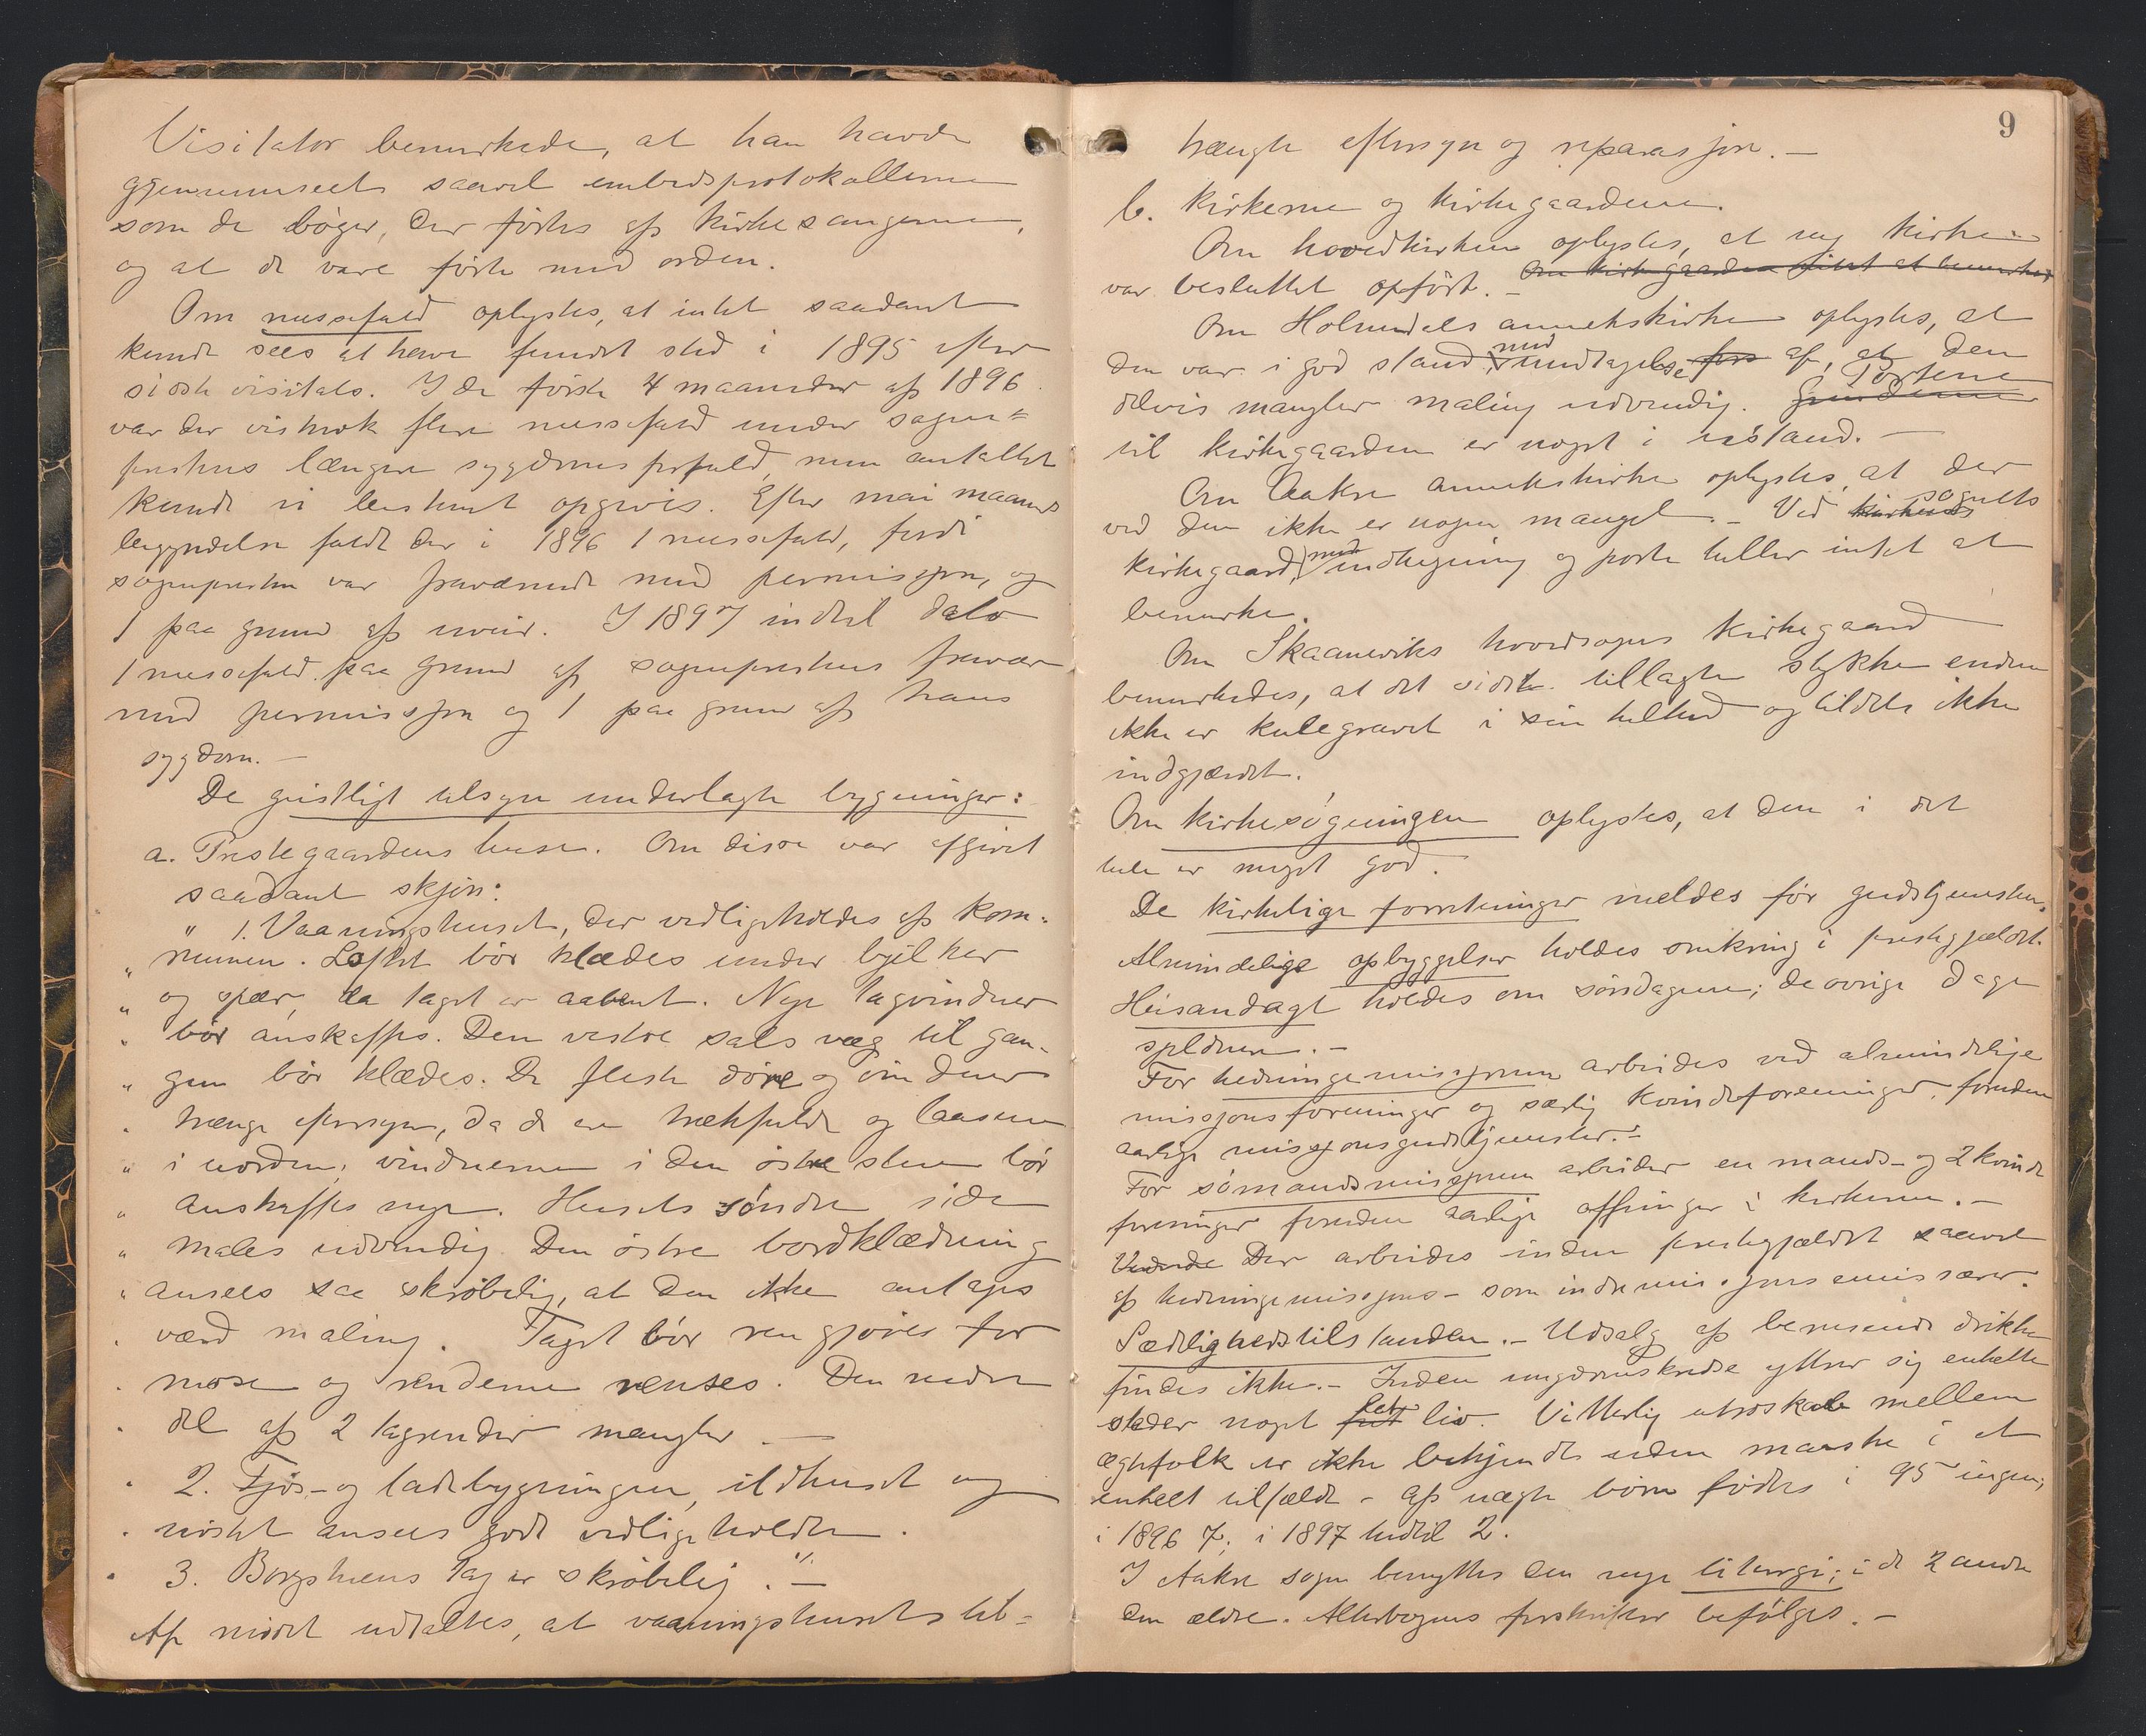 Visitator bemerkede, at han havde
gjennemseet saavel embedsprotokollerne
som de bøger, der føres af kirkesangerne,
og at de vare førte med orden.
Om messefald oplystes, at intet saadant
kunde sees at have fundet sted i 1895 efter
sidste visitats. I de første 4 maaneder af 1896
var der vistnok flere messefald under sogne-
prestens længere sygdomsforfald, men antallet
kunde ei bestemt opgives. Efter mai maaneds
begyndelse faldt der i 1896 1 messefald, fordi
sognepresten var fraværende med permissjon, og
1 paa grund af uveir. I 1897 indtil dato
1 messefald paa grund af sogneprestens fravær
med permissjon og 1 paa grund af hans
sygdom. —
De geistligt tilsyn underlagte bygninger:
a. Prestegaardens huse. Om disse var afgivet
saadant skjøn:
" 1. Vaaningshuset, der vedligeholdes af kom-
" munen. Loftet bør klædes under bjelker
" og spær, da taget er aabent. Nye tagvinduer
" bør anskaffes. Den vestre sals væg til gan-
" gen bør klædes. De fleste døre og vinduer
" trænge eftersyn, da de ere trækfulde og laasene
" i uorden; vinduerne i den østre stue bør
" anskaffes nye. Husets søndre side
" males udvendig. Den østre bordklædning
" ansees saa skrøbelig, at den ikke antages
" værd maling. Taget bør rengjøres for
" mose og renderne renses. Den nedre
" del af 2 tagrender mangler. —
" 2. Fjøs- og ladebygningen, ildhuset og
" nøstet ansees godt vedligeholdte.
" 3. Borgstuens tag er skrøbelig." —
Af mødet udtaltes, at vaaningshusets til-
9
trængte eftersyn og reparasjon. —
b. Kirkerne og kirkegaardene.
Om hovedkirken oplystes, at ny kirke
var besluttet opført. — Om kirkegaarden intet at bemerke
Om Holmedals annekskirke oplystes, at
den var i god stand, med undtagelse af, at den
delvis mangler maling udvendig. Portene
til kirkegaarden er noget i ustand. —
Om Aakre annekskirke oplystes, at der
ved den ikke er nogen mangel. — Ved kirkens sognets
kirkegaard, med indhegning og porte heller intet at
bemerke.
Om Skaaneviks hovedsogns kirkegaard
bemerkedes, at det sidste tillagte stykke endnu
ikke er kulegravet i sin helhed og tildels ikke
indgjærdet.
Om kirkesøgningen oplystes, at den i det
hele er meget god.
De kirkelige forretninger meldes før gudstjenesten.
Almindelige opbyggelser holdes omkring i prestegjældet.
Husandagt holdes om søndagene; de øvrige dage
sjeldnere. —
For hedningemissjonen arbeides ved almindelige
missjonsforeninger og særlig kvindeforeninger, foruden
aarlige missjonsgudstjenester. —
For sømandsmissjonen arbeider en mands- og 2 kvinde
foreninger foruden aarlige offringer i kirkerne. —
Der arbeides inden prestegjældet saavel
af hedningemissjons- som indremissjonsemissærer.
Sædelighedstilstanden. — Udsalg af berusende drikke
findes ikke. — Inden ungdomskredse ytrer sig enkelte
steder noget frit let liv. Vitterlig utroskab mellem
ægtefolk er ikke bekjendt uden maaske i et
enkelt tilfælde — af uægte børn fødtes i 95 ingen;
i 1896 7; i 1897 hidtil 2.
I Aakre sogn benyttes den nye liturgi; i de 2 andre
den ældre. Alterbogens forskrifter befølges. —